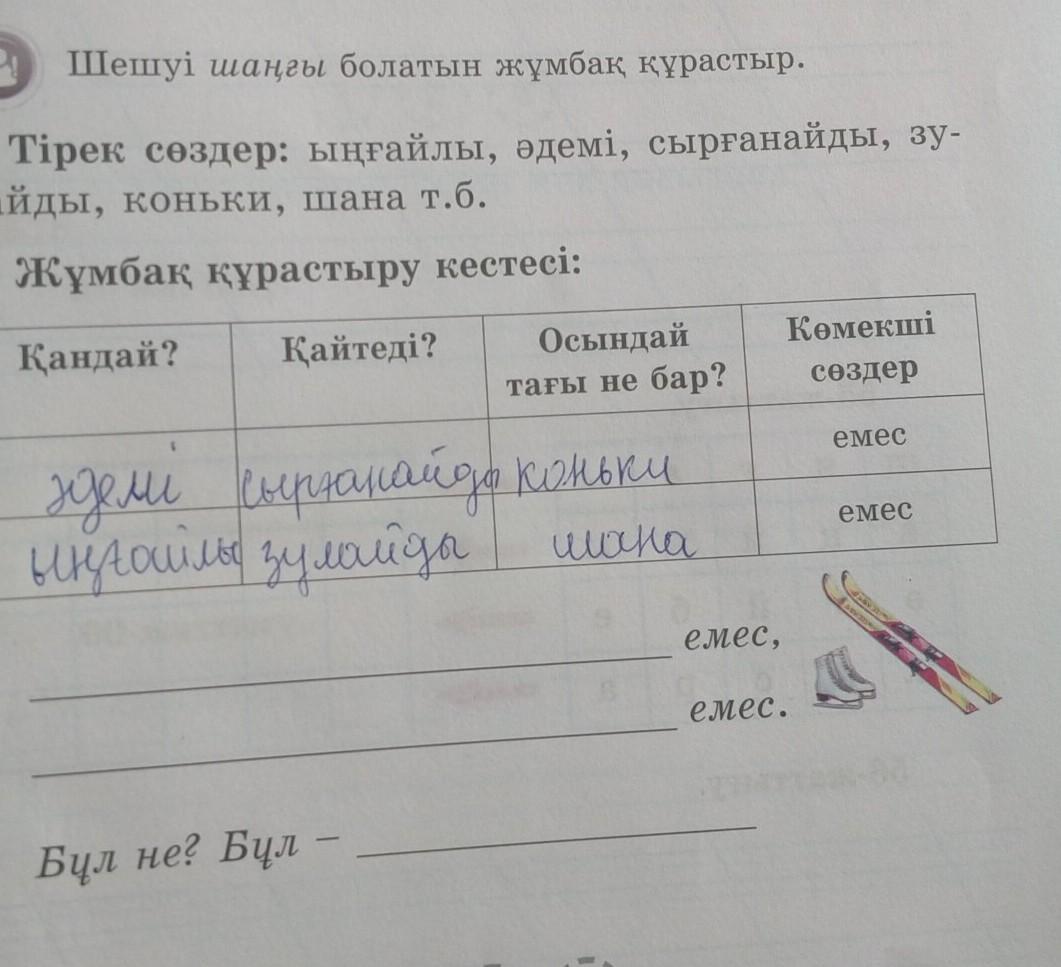 Шешуі шаңғы болатын жұмбақ құрастыр.
Тірек сөздер: ыңғайлы, әдемі, сырғанайды, зу-
айды, коньки, шана т.б.
Жұмбақ құрастыру кестесі:
Қандай? Қайтеді? Осындай тағы не бар? Көмекші сөздер
әдемі сырғанайды коньки емес
ыңғайлы зулайды шана емес
емес,
емес.
Бұл не? Бұл –